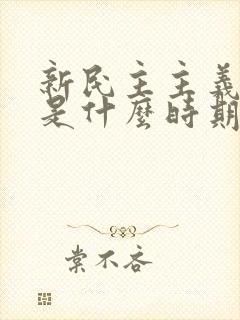 新民主主義
是什麼時期
棠不吝